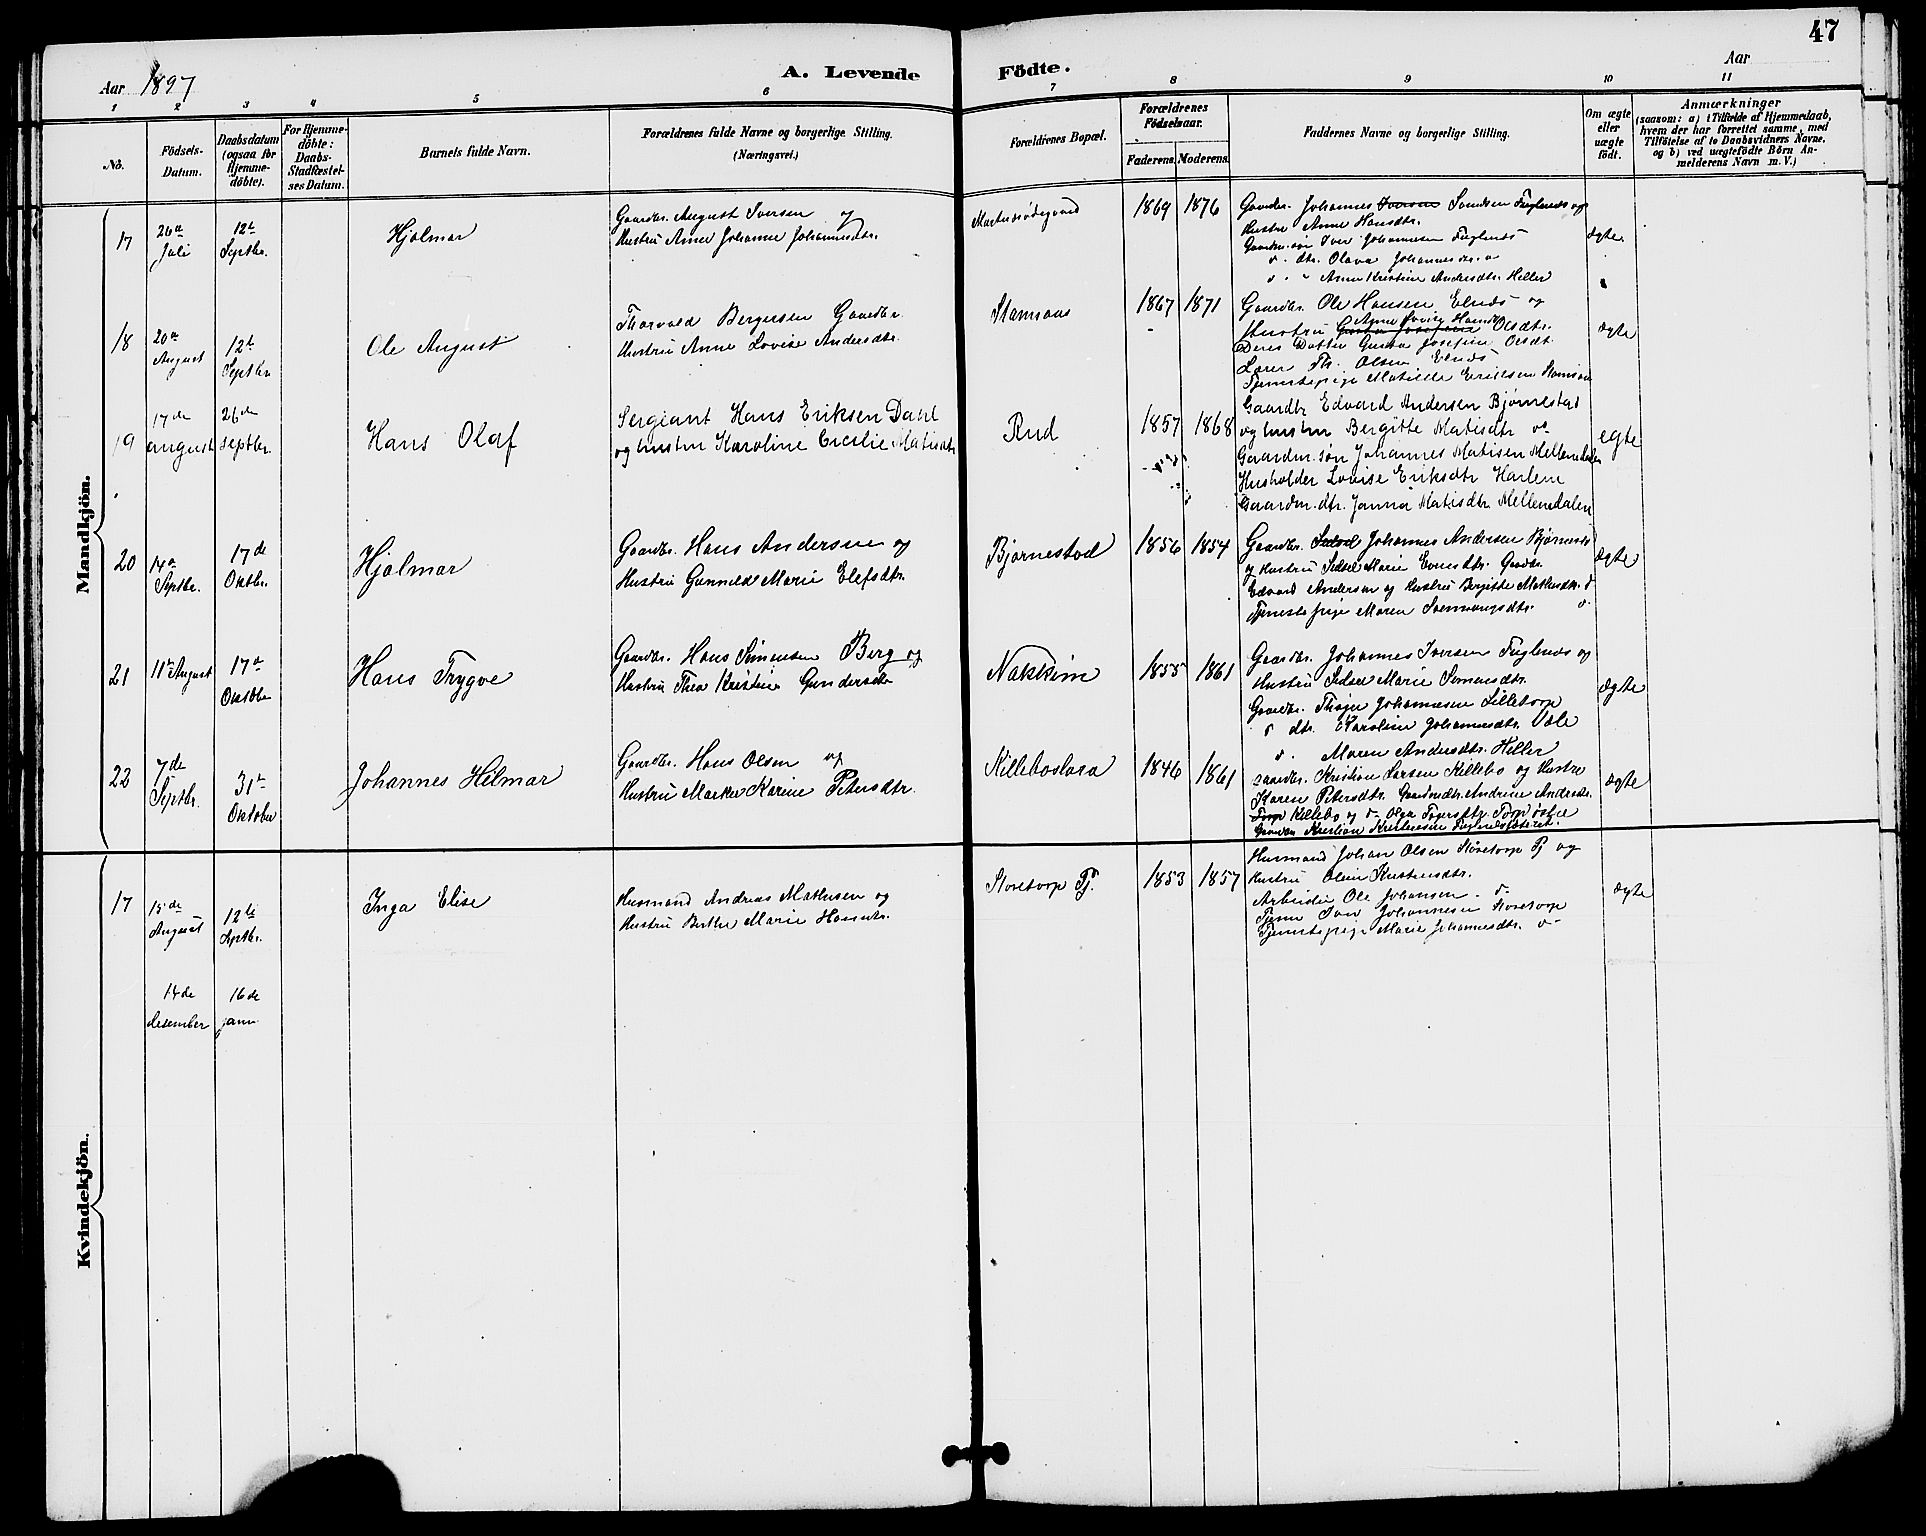 47
Aar 1897
A. Levende Födte.
Aar
1 2 3 4 5 6 7 8 9 10 11
No.
Födsels-
Datum.
Daabsdatum
(ogsaa for
Hjemme-
döbte).
For Hjemme-
döbte:
Daabs-
Stadfæstel-
ses Datum.
Barnets fulde Navn.
Forældrenes fulde Navne og borgerlige Stilling.
(Næringsvei.)
Forældrenes Bopæl.
Forældrenes
Födselsaar.
Faderens. Moderens.
Faddernes Navne og borgerlige Stilling.
Om ægte
eller
uægte
födt.
Anmærkninger
(saasom: a) i Tilfælde af Hjemmedaab,
hvem der har forrettet samme, med
Tilföielse af to Daabsvidners Navne,
og b) ved uægtefödte Börn An-
melderens Navn m. V.)
Mandkjön.
17
26de
Juli
12te
Septbr.
Hjalmar
Gaardbr. August Iversen og
Hustru Anne Johanne Johannesdtr.
1869 1876
Gaardbr. Johannes Iversen Svendsen Fuglenes og
Hustru Anne Hansdtr.
Gaardm. søn Iver Johannesen Fuglenes
d. dtr. Olava Johannesdtr. d
d. " Anne Kristine Andersdtr. Heller
ægte.
18
20de
August
12te
Septbr
Ole August
Thorvald Bergersen Gaardbr.
Hustru Anne Lovise Andersdtr.
Stomsaas
1867 1871
Gaardbr. Ole Hansen Elnes og
Anne Lovise Hansdtr
Hustru Gusta Josefine Olsdtr.
Deres Datter Gusta Josefine Olsdt.
Lærer Th. Olsen Elnes
Tjenestepige Matilde Eriksen
ægte
19
17de
august
26de
septbr.
Hans Olaf
Sergiant Hans Eriksen Dahl
og hustru Karoline Cecilie Matisdtr
Rud
1857 1868
Gaardbr Edvard Andersen Bjørnestad
og hustru Bergitte Matisdtr do
Gaardm. søn Johannes Matisen Mellemdalen
Husholder Lovise Eriksdtr Harlem
Gaardm. dtr. Janna Matisdtr Mellemdalen
egte
20
14de
Septbr.
17de
Oktbr.
Hjalmar
Gaardbr. Hans Andersen og
Hustru Gunnilde Marie Elefsdtr.
Bjørnestad
1856 1854
Gaardbr. Sidsel Johannes Andersen Bjørnestad
og Hustru Sidsel Marie Evensdtr. Gaardbr.
Edvard Andersen og Hustru Bergitte Mathisdtr. d
Tjenestepige Maren Svenningsdtr. d.
ægte
21
11te August
17de
Oktober
Hans Trygve
Gaardbr. Hans Simensen Berg og
Hustru Thea Kristine Gundersdtr
Nakkim
1855 1861
Gaardbr. Johannes Iversen Fuglenes og
Hustru Sidsel Marie Simensdtr.
Gaardbr. Thøger Johannesen Lilletorp
d dtr. Karoline Johannesdtr. Væle
d. Maren Andersdtr. Heller
ægte
22
7de
Septbr.
31te
Oktober
Johannes Hilmar
Gaardbr. Hans Olsen og
Hustru Maren Karine Petersdtr.
Killeboslora
1846 1861
Gaardbr. Kristian Larsen Killebo og Hustru
Karen Petersdtr. Gaardmdtr. Andrine Andersdtr.
Torp Killebo og d- Olga Tøgersdtr. Torp østre
Gaardbr Kristian Kristensen
ægte
Kvindekjön.
17
15de
August
12te
Septbr.
Inga Elise
Husmand Andreas Mathisen og
Hustru Berthe Marie Hansdtr.
Storetorp Pj.
1853 1857
Husmand Johan Olsen Storetorp Pj og
Hustru Oline Kristensdtr.
Arbeider Ole Johansen d.
Tjener Ivar Johannesen Storetorp
Tjenestepige Marie Johannesdtr. d-
ægte
14de
desember
16de
janu